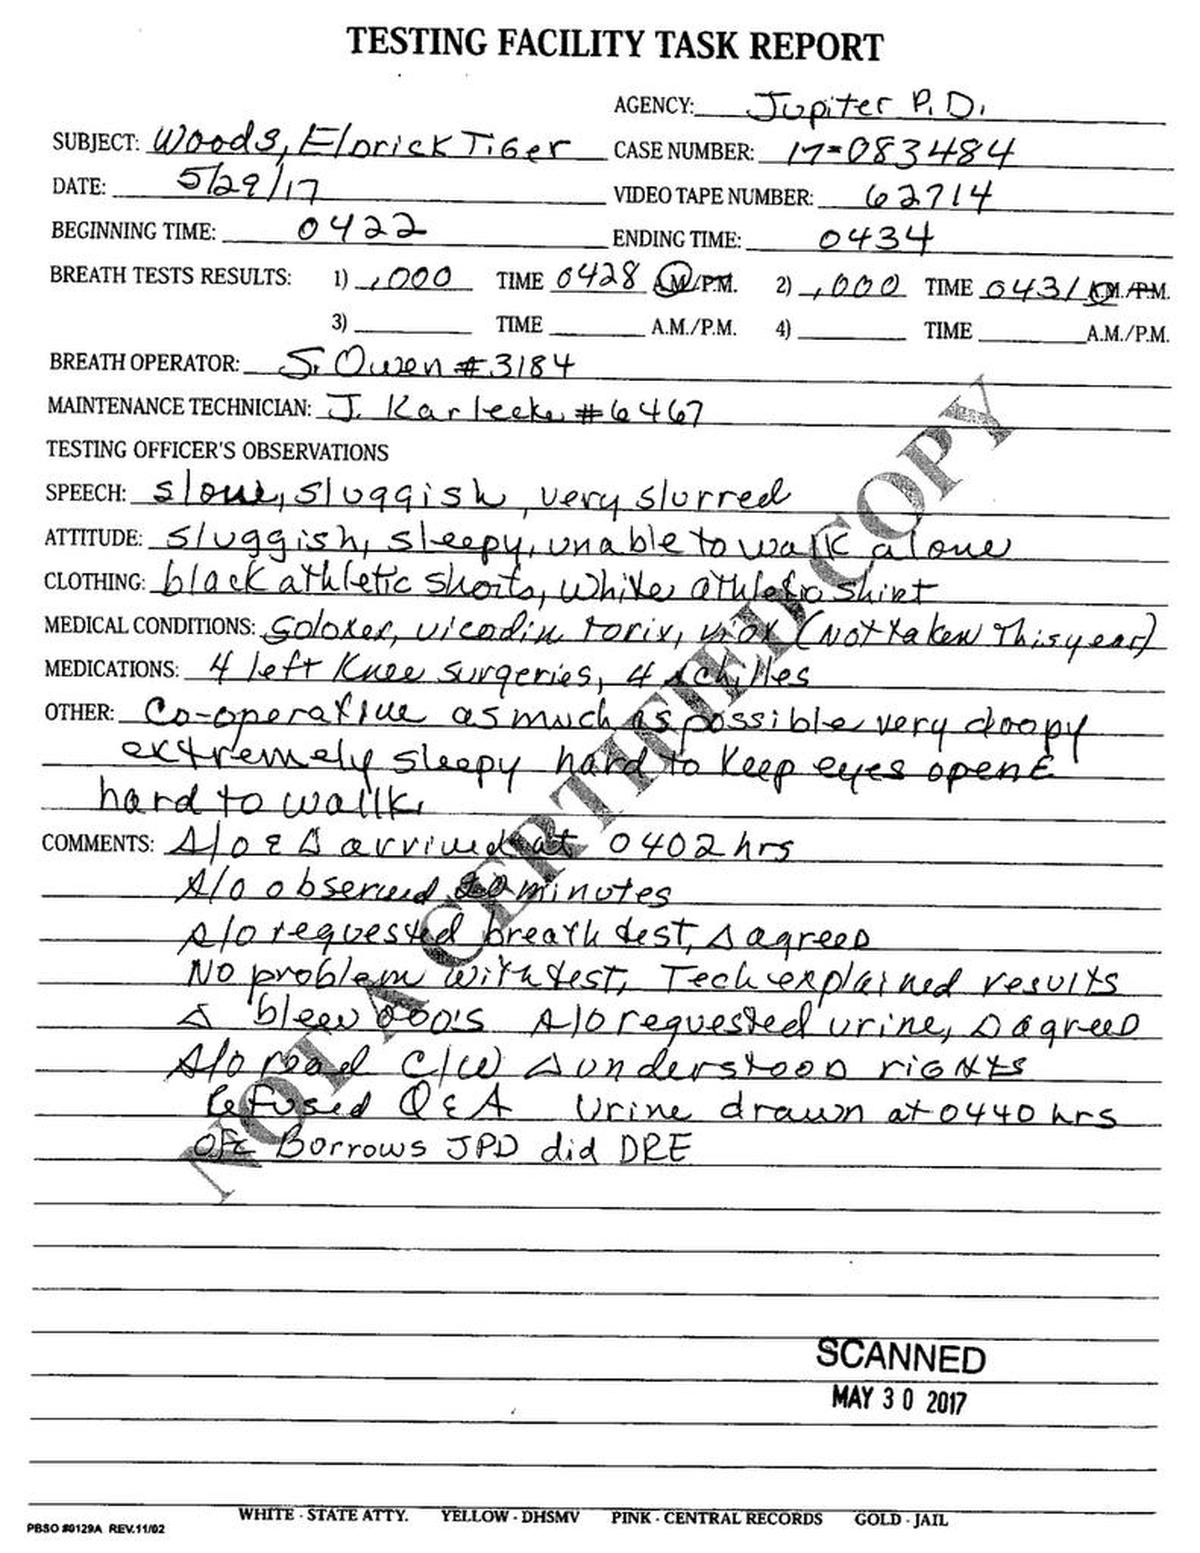 TESTING FACILITY TASK REPORT
AGENCY: Jupiter P.D.
SUBJECT: Woods, Eldrick Tiger CASE NUMBER: 17-083484
DATE: 5/29/17 VIDEO TAPE NUMBER: 62714
BEGINNING TIME: 0422 ENDING TIME: 0434
BREATH TESTS RESULTS: 1) .000 TIME 0428 A.M./P.M. 2) .000 TIME 0431 A.M./P.M.
3) TIME A.M./P.M. 4) TIME A.M./P.M.
BREATH OPERATOR: S. Owen #3184
MAINTENANCE TECHNICIAN: J. Karlecke #6467
TESTING OFFICER'S OBSERVATIONS
SPEECH: slow, sluggish, very slurred
ATTITUDE: sluggish, sleepy, unable to walk alone
CLOTHING: black athletic shorts, white athletic shirt
MEDICAL CONDITIONS: Soloxer, vicodin torix, viox (Not taken This year)
MEDICATIONS: 4 left Knee surgeries, 4 achilles
OTHER: Co-operative as much as possible very doopy
extremely sleepy hard to Keep eyes open &
hard to wallk.
COMMENTS: A/O & Δ arrived at 0402 hrs
A/O observed 20 minutes
A/O requested breath test, Δ agreed
No problem with test, Tech explained results
Δ blew 000's A/O requested urine, Δ agreed
A/O read C/W Δ understood rights
Refused Q & A Urine drawn at 0440 hrs
Ofc Borrows JPD did DRE
NOT A CERTIFIED COPY
SCANNED
MAY 30 2017
WHITE - STATE ATTY. YELLOW - DHSMV PINK - CENTRAL RECORDS GOLD - JAIL
PBSO #0129A REV.11/02